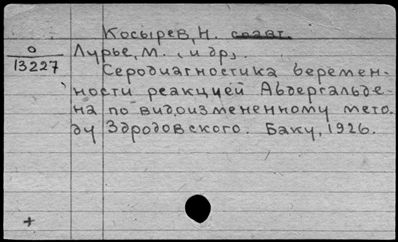 Косырев, Н. соавт.
О
13227
Лурье, М. (и др).
Серодиагностика беремен-
ности реакцией Абдергальде-
на по видоизмененному мето-
ду Здродовского. Баку, 1926.
+